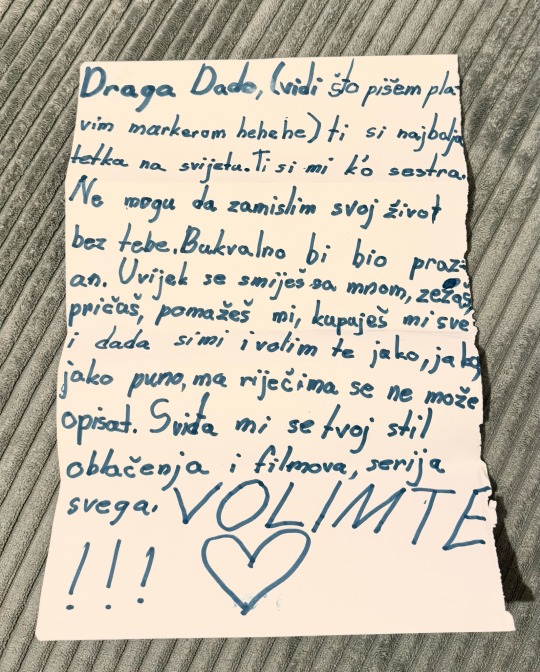 Draga Dado, (vidi što pišem pla-
vim markerom hehehe) ti si najbolja
tetka na svijetu. Ti si mi k'o sestra.
Ne mogu da zamislim svoj život
bez tebe. Bukvalno bi bio praz-
an. Uvijek se smiješ sa mnom, zezaš,
pričaš, pomažeš mi, kupuješ mi sve
i dada si mi i volim te jako, jako
jako puno, ma riječima se ne može
opisat. Sviđa mi se tvoj stil
oblačenja i filmova, serija
svega. VOLIM TE
!!!